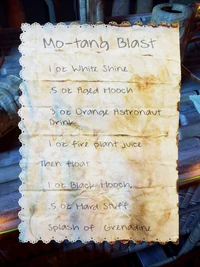 Mo-tang Blast
1 oz White Shine
.5 oz Aged Hooch
.5 oz Orange Astronaut
Drink
1 oz fire plant juice
Then float
1 oz Black Hooch
.5 oz Hard Stuff
Splash of Grenadine